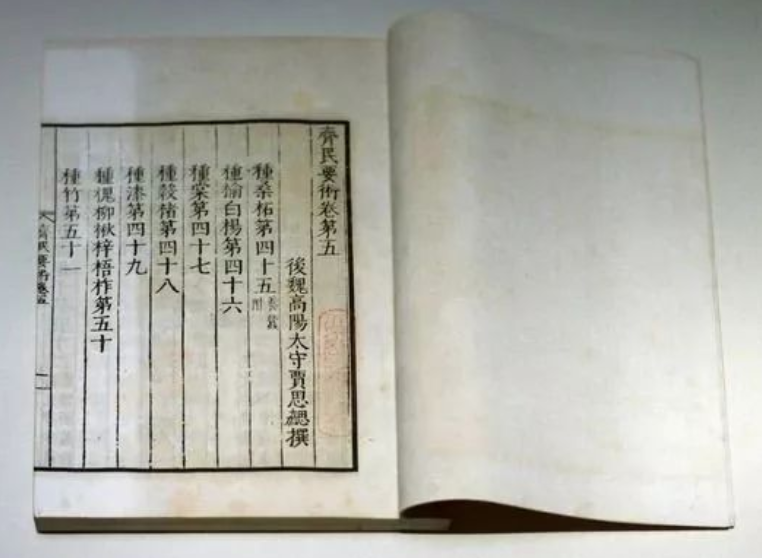 齊民要術卷第五
後魏高陽太守賈思勰撰
種桑柘第四十五養蠶附
種榆白楊第四十六
種棠第四十七
種穀楮第四十八
種漆第四十九
種槐柳楸梓梧柞第五十
種竹第五十一
齊民要術卷五
一